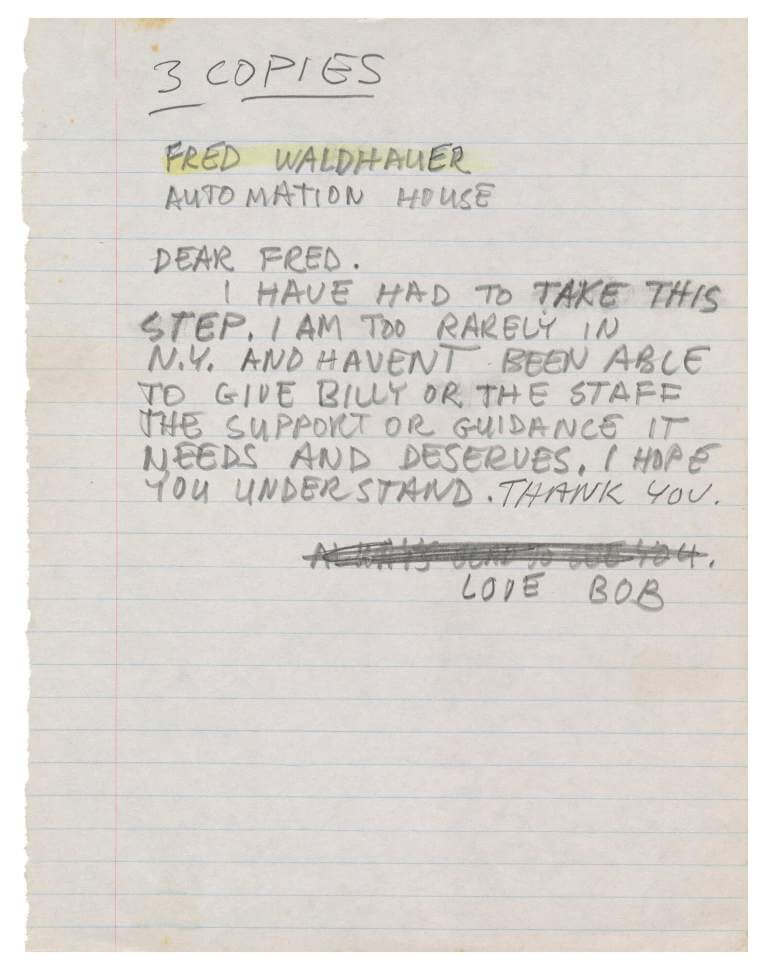 3 COPIES
FRED WALDHAUER
AUTOMATION HOUSE
DEAR FRED.
I HAVE HAD TO TAKE THIS
STEP. I AM TOO RARELY IN
N.Y. AND HAVENT BEEN ABLE
TO GIVE BILLY OR THE STAFF
THE SUPPORT OR GUIDANCE IT
NEEDS AND DESERVES. I HOPE
YOU UNDERSTAND. THANK YOU.
ALWAYS YOU.
LOVE BOB